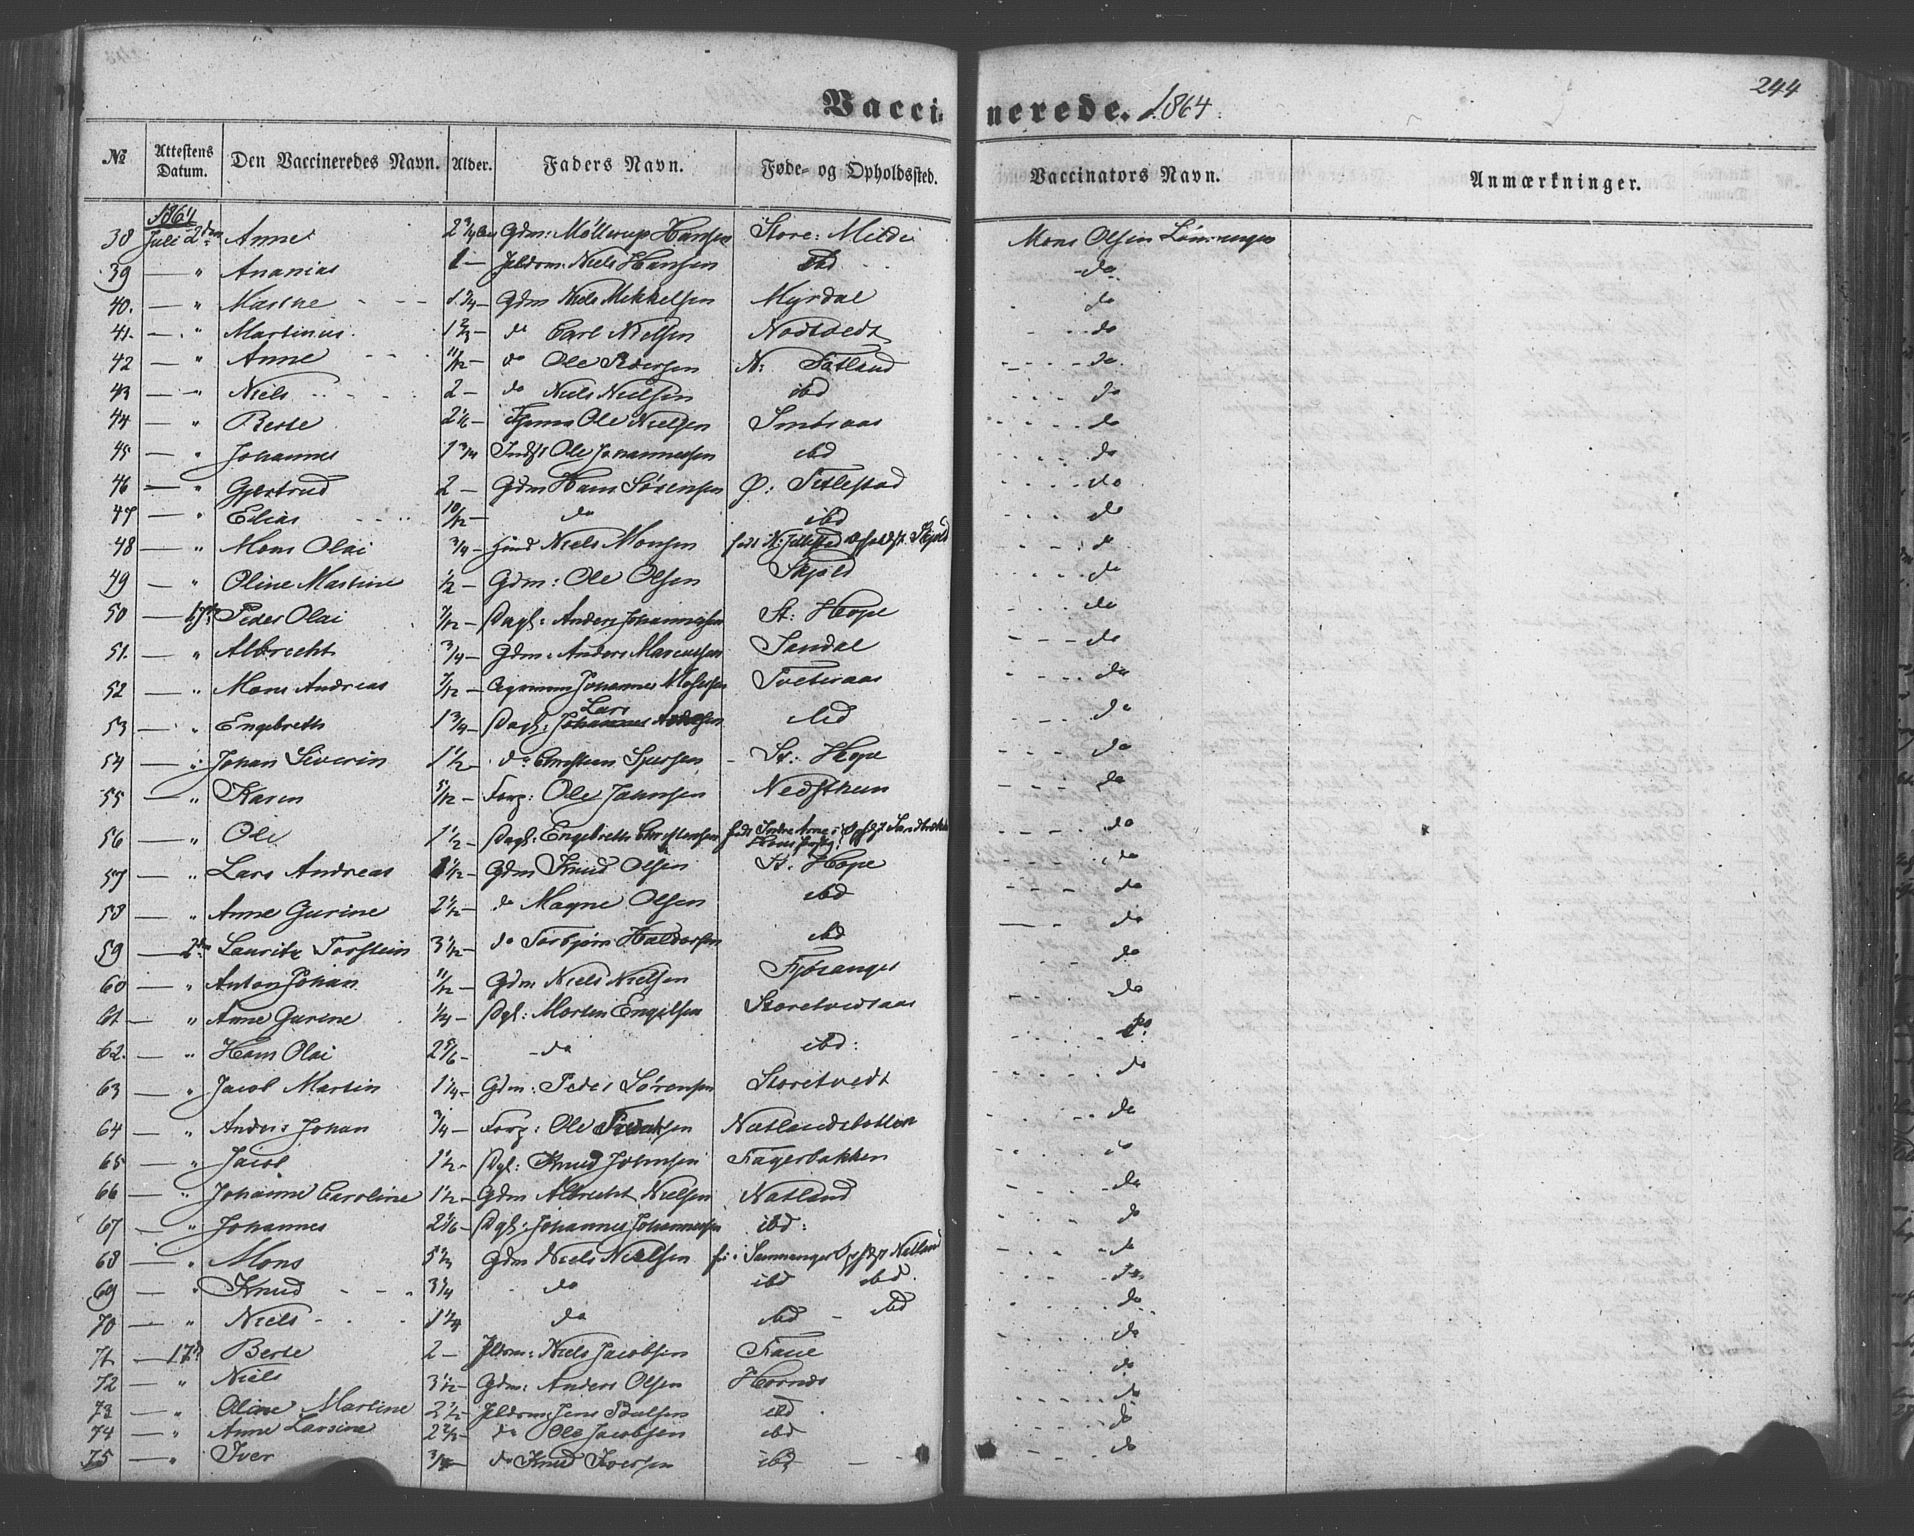 244
Vaccinerede. 1864.
№ Attestens Datum. Den Vaccineredes Navn. Alder. Faders Navn. Føde- og Opholdssted. Vaccinators Navn. Anmærkninger.
1864
38 Juli 2den Anne 2 3/4 Gdm: Hansen Store: Milde Mons Olsen
39 — " Ananias 1 — Niels Hansen ibd do
40. — " Marthe 1 3/4 — Gdm Niels Mikkelsen Myrdal do
41. — " Martinus 1 2/3 — do Carl Nielsen Nodtvedt do
42 — " Anne 11/12 — do Ole Pedersen N: Sætland do
43 — " Niels 2 — do Niels Nielsen ibd do
44 — " Berte 2 1/6 — Ole Nielsen Smøraas do
45 — " Johannes 1 3/4 Indst Ole Johannessen ibd do
46 — " Gjertrud 2 — Gdm Hans Sørensen Ø: Titlestad do
47 — " Elias 10/12 — do ibd do
48 — " Mons Olai 3/4 — Niels Monsen født N: Titlestad Opholdst. Skjold do
49 — " Oline Martine 1/2 — Gdm: Ole Olsen Skjold do
50 — 17de Peder Olai 7/12 — Pagt: Anders Johannessen St: Hope do
51. — " Albrecht 3/4 — Gdm: Anders Marcussen Sandal do
52 — " Mons Andreas 7/12 — Johannes Tveteraas do
53 — " Engebreth 1 3/4 — Pagt: Lars ibd do
54 — " Johan Severin 1 1/2 — do Christian St: Hope do
55 — " Karen 5/12 — Forp: Ole Nedsthun do
56 — " Ole 1 1/2 — Pagt: Engebreth Christensen født Indre Arne do
57 — " Lars Andreas 1/12 — Gdm Knud Olsen St: Hope do
58 — " Anne Gurine 2 1/12 — do Magne Olsen ibd do
59 — 2den Lauritz Torstein 3 1/12 — do Torbjørn Haldorsen ibd do
60 — " Anton Johan 11/12 — Gdm Niels Nielsen Fjøsanger do
61 — " Anne Gurine 1/4 — Pgt: Morten Engelsen Storetvedtaas do
62. — " Hans Olai 2 5/6 — do ibd: do
63 — " Jacob Martin 1 1/4 — Gdm: Peder Sørensen Storetvedt do
64 — " Anders Johan 3/4 — Forp: Ole Natlandsbotten do
65 — " Jacob 1 1/2 — Pgt: Knud Johnsen Fagerbakken do
66 — " Johanne Caroline 1 1/2 — Gdm Albrecht Nielsen Natland do
67 — " Johannes 2 1/6 — Pgt: Johannes Johannessen ibd: do
68 — " Mons 5 1/2 Gdm Niels Nielsen Samnanger Natland do
69 — " Knud 3 1/4 do ibd ibd. do
70 — " Niels 1 1/4 do ibd — ibd do
71 — 17de Berte 2 — Niels Jacobsen Fane do
72 — " Niels 3 1/2 — Gdm: Anders Olsen Hornæs do
73 — " Oline Martine 2 1/2 — ibd do
74 — " Anne Larsine 2 2/3 — do Ole Jacobsen ibd do
75 — " Iver 3/4 — do Knud Iversen ibd do